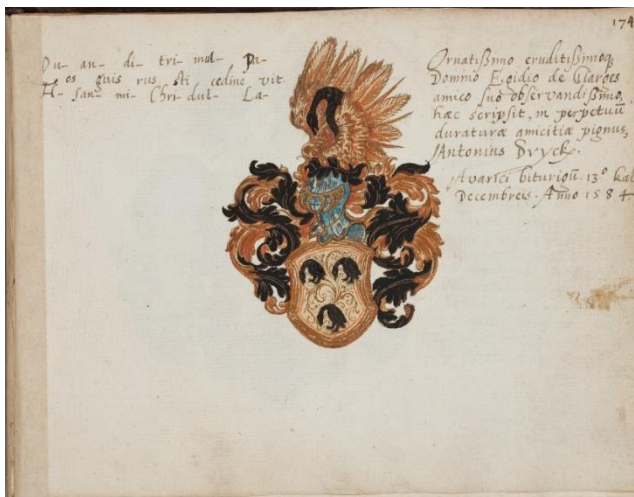 174
Qu- an- di- tri- mul- Pa-
os guis rus sti cedine vit
H- san- mi- Chri- dul- La-
Ornatißimo eruditißimoq
Domino Egidio de Glarges
amico suo observandißimo,
hæc scripsit, in perpetuū
duraturæ amicitiæ pignus,
Antonius Dryck.
Avarici biturigū. 13° kal
Decembreis. Anno 1584.